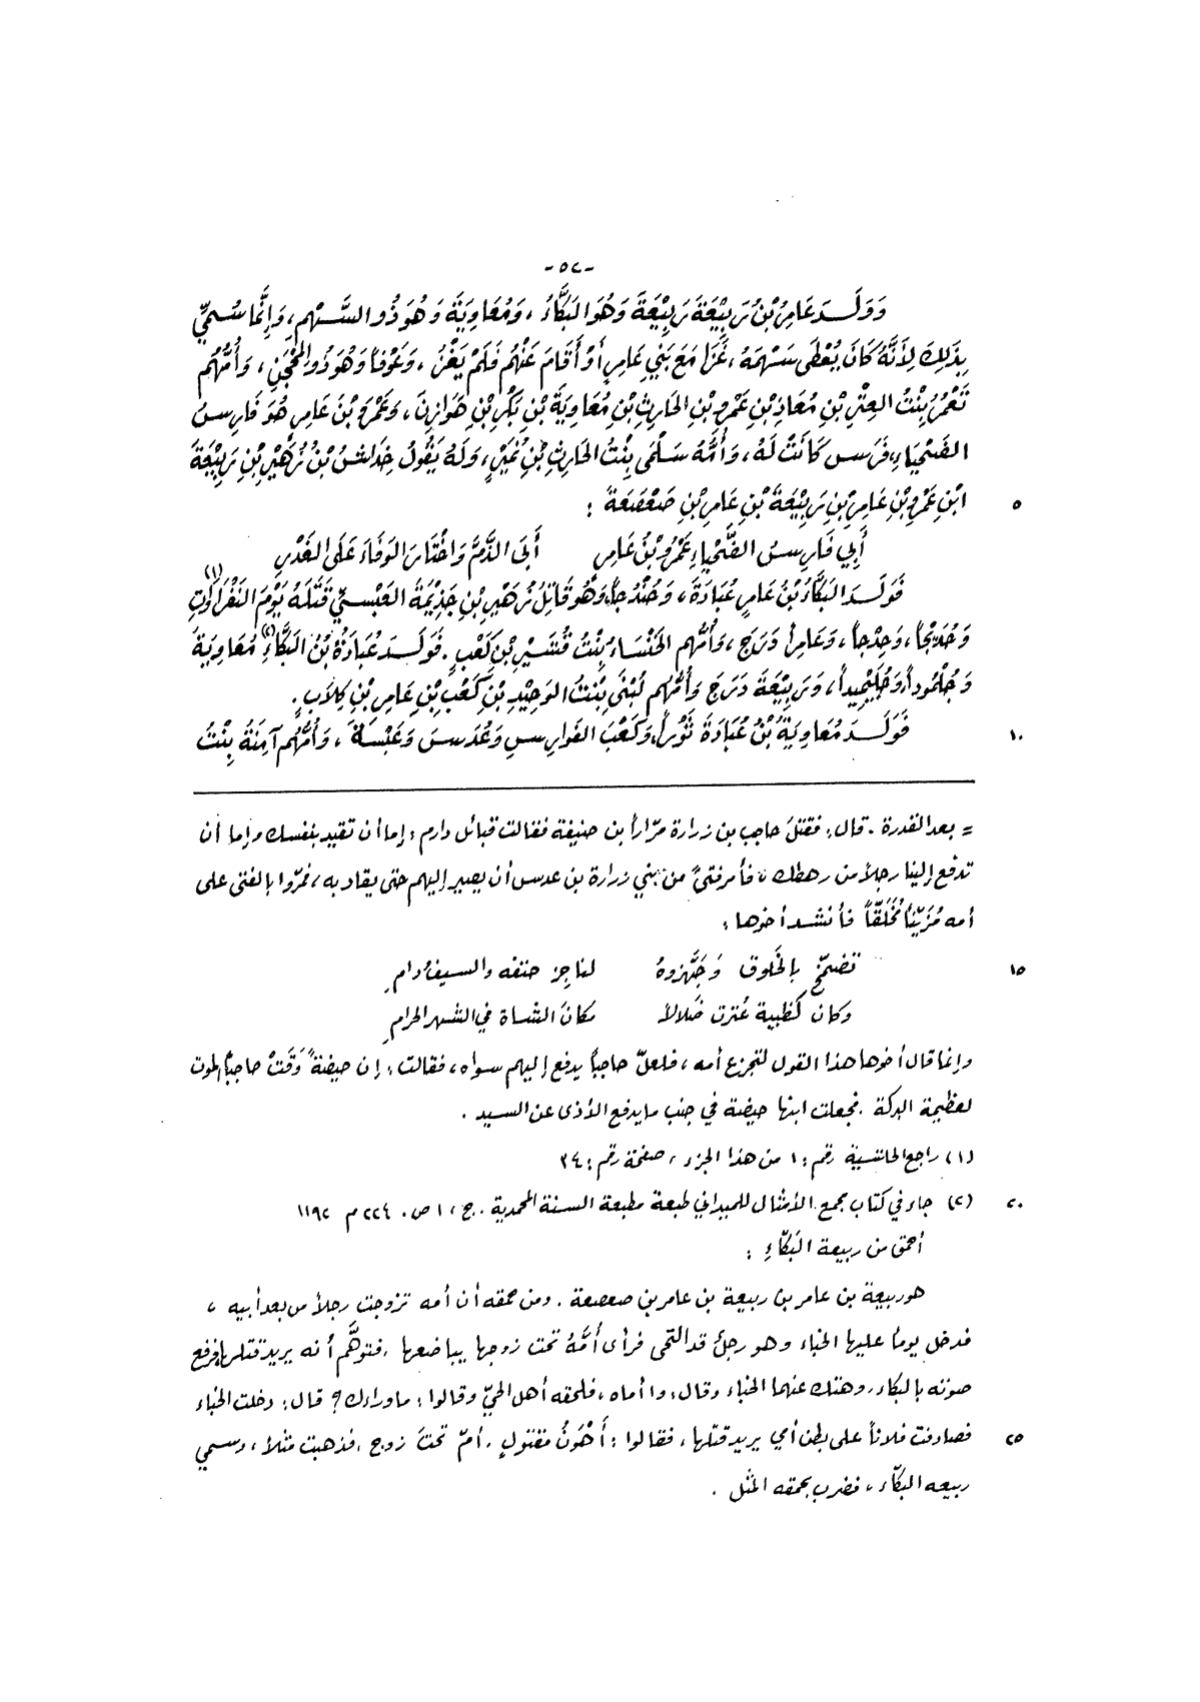 -٥٢-
وَوَلَـدَ عَامِرُ بْنُ رَبِيْعَةَ رَبِيْعَةَ وَهُوَ البَكَّاءُ ، وَمُعَاوِيَةَ وَهُوَ ذُو السَّـهْمِ، وَإِنَّمَا سُمِيِّ
بِذَلِكَ لِأَنَّهُ كَانَ يُعْطَى سَهْمَهُ ، غَزَا مَعَ بَنِي عَامِرٍ أَوْ أَقَامَ عَنْهُم فَلَمْ يَغْزُ ، وَعَوْفَاً وَهُوَ ذُو المِحْجَنِ ، وَأُمُّهُم
تَعْمُرُ بِنْتُ العِتْرِ بْنِ مُعَاذِ بْنِ عَمْرِو بْنِ الحَارِثِ بْنِ مُعَاوِيَةَ بْنِ بَكْرِ بْنِ هَوَازِنَ ، وَعَمْرَو بْنَ عَامِرٍ هُوَ فَارِسُ
الضَّحْيَاءِ، فَرَسٍ كَانَتْ لَهُ ، وَأُمُّهُ سَلْمَى بِنْتُ الحَارِثِ بْنِ نُمَيْرٍ، وَلَهُ يَقُولُ خِدَاشُ بْنُ زُهَيْرِ بْنِ رَبِيْعَةَ
ابْنِ عَمْرِو بْنِ عَامِرِ بْنِ رَبِيْعَةَ بْنِ عَامِرِ بْنِ صَعْصَعَةَ : ٥
أَبِي فَارِسُ الضَّحْيَاءِ عَمْرُو بْنُ عَامِرٍ أَبَى الذَّمَّ وَاخْتَارَ الوَفَاءَ عَلَى الغَدْرِ
فَوَلَـدَ البَكَّاءُ بْنُ عَامِرٍ عُبَادَةَ ، وَحُنْدُجَاً، وَهُوَ قَاتِلُ زُهَيْرِ بْنِ جَذِيْمَةَ العَبْسِيِّ قَتَلَهُ يَوْمَ النَّفْرَاوَاتِ (١)
وَحُدَيْجَاً ، وَحِدْجَاً ، وَعَامِرَاً دَرَجَ ، وَأُمُّهم الخَنْسَاءُ بِنْتُ قُشَيْرِ بْنِ كَعْبٍ . فَوَلَـدَ عُبَادَةُ بْنُ البَكَّاءِ(٢) مُعَاوِيَةَ
وَجُلْمُوداً، وَجُلَيْمِيداً ، وَرَبِيْعَةَ دَرَجَ وَأُمُّهُم لُبْنَى بِنْتُ الوَحِيْدِ بْنِ كَعْبِ بْنِ عَامِرِ بْنِ كِلَابٍ .
فَوَلَـدَ مُعَاوِيَةُ بْنُ عُبَادَةَ ثَوْرَاً، وَكَعْبَ الفَوَارِسِ وَعُدَسَ وَعَبْسَةَ ، وَأُمُّهُم آمِنَةُ بِنْتُ ١٠
= بعد القدرة . قال : فقتل حاجب بن زرارة مرّاراً بن حنيفة فقالت قبائل دارم : إما أن تقيد بنفسك وإما أن
تدفع إلينا رجلاً من رهطك ، فأمر فتىً من بني زرارة بن عدس أن يصير إليهم حتى يقاد به ، فمرّوا بالفتى على
أمه مُزَيَّناً مُخَلَّقاً فأنشد أخوها :
تضمّخ بالخَلوق وَجَهَّزوهُ لناجز حتفه والسيفُ دامِ ١٥
وكان كظبية عُترت ضَلالاً مكانَ الشاة في الشهر الحرامِ
وإنما قال أخوها هذا القول لتجزع أمه ، فلعلّ حاجباً يدفع إليهم سواه ، فقالت : إن حيضةً وَقَتْ حاجباً الموت
لعظيمة البركة . فجعلت ابنها حيضة في جنب ما يدفع الأذى عن السيد .
(١) راجع الحاشية رقم : ١ من هذا الجزء ، صفحة رقم : ٣٤
(٢) جاء في كتاب مجمع الأمثال للميداني طبعة مطبعة السنة المحمدية . ج : ١ ص . ٢٢٤ م ١١٩٢ ٢٠
أحمق من ربيعة البَكّاءِ :
هو ربيعة بن عامر بن ربيعة بن عامر بن صعصعة . ومن حمقه أن أمه تزوجت رجلاً من بعد أبيه ،
فدخل يوماً عليها الخباء وهو رجلٌ قد التحى فرأى أُمَّهُ تحت زوجها يباضعها ، فتوهَّم أنه يريد قتلها، فرفع
صوته بالبكاء ، وهتك عنهما الخباء وقال : وا أماه ، فلحقه أهل الحيّ وقالوا : ما وراءك ؟ قال : دخلت الخباء
فصادفت فلاناً على بطن أمي يريد قتلها ، فقالوا : أَهْوَنُ مقتولٍ . أمّ تحتَ زوج ، فذهبت مثلاً ، وسمي ٢٥
ربيعه البكّاء ، فضرب بحمقه المثل .